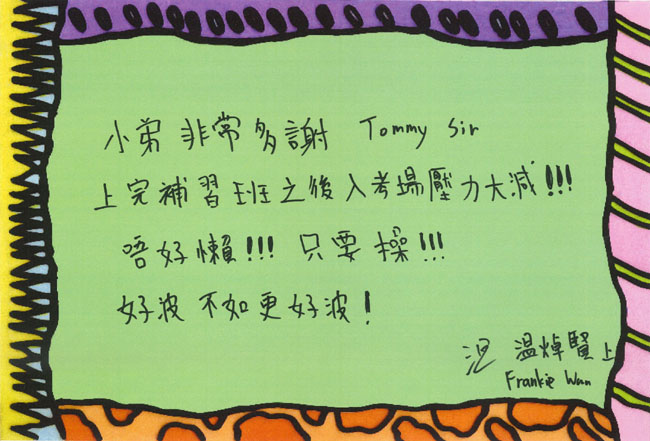 小弟 非常多謝 Tommy Sir
上完補習班之後入考場壓力大減!!!
唔好懶!!! 只要操!!!
好波 不如更好波!
温焯賢上
Frankie Wan